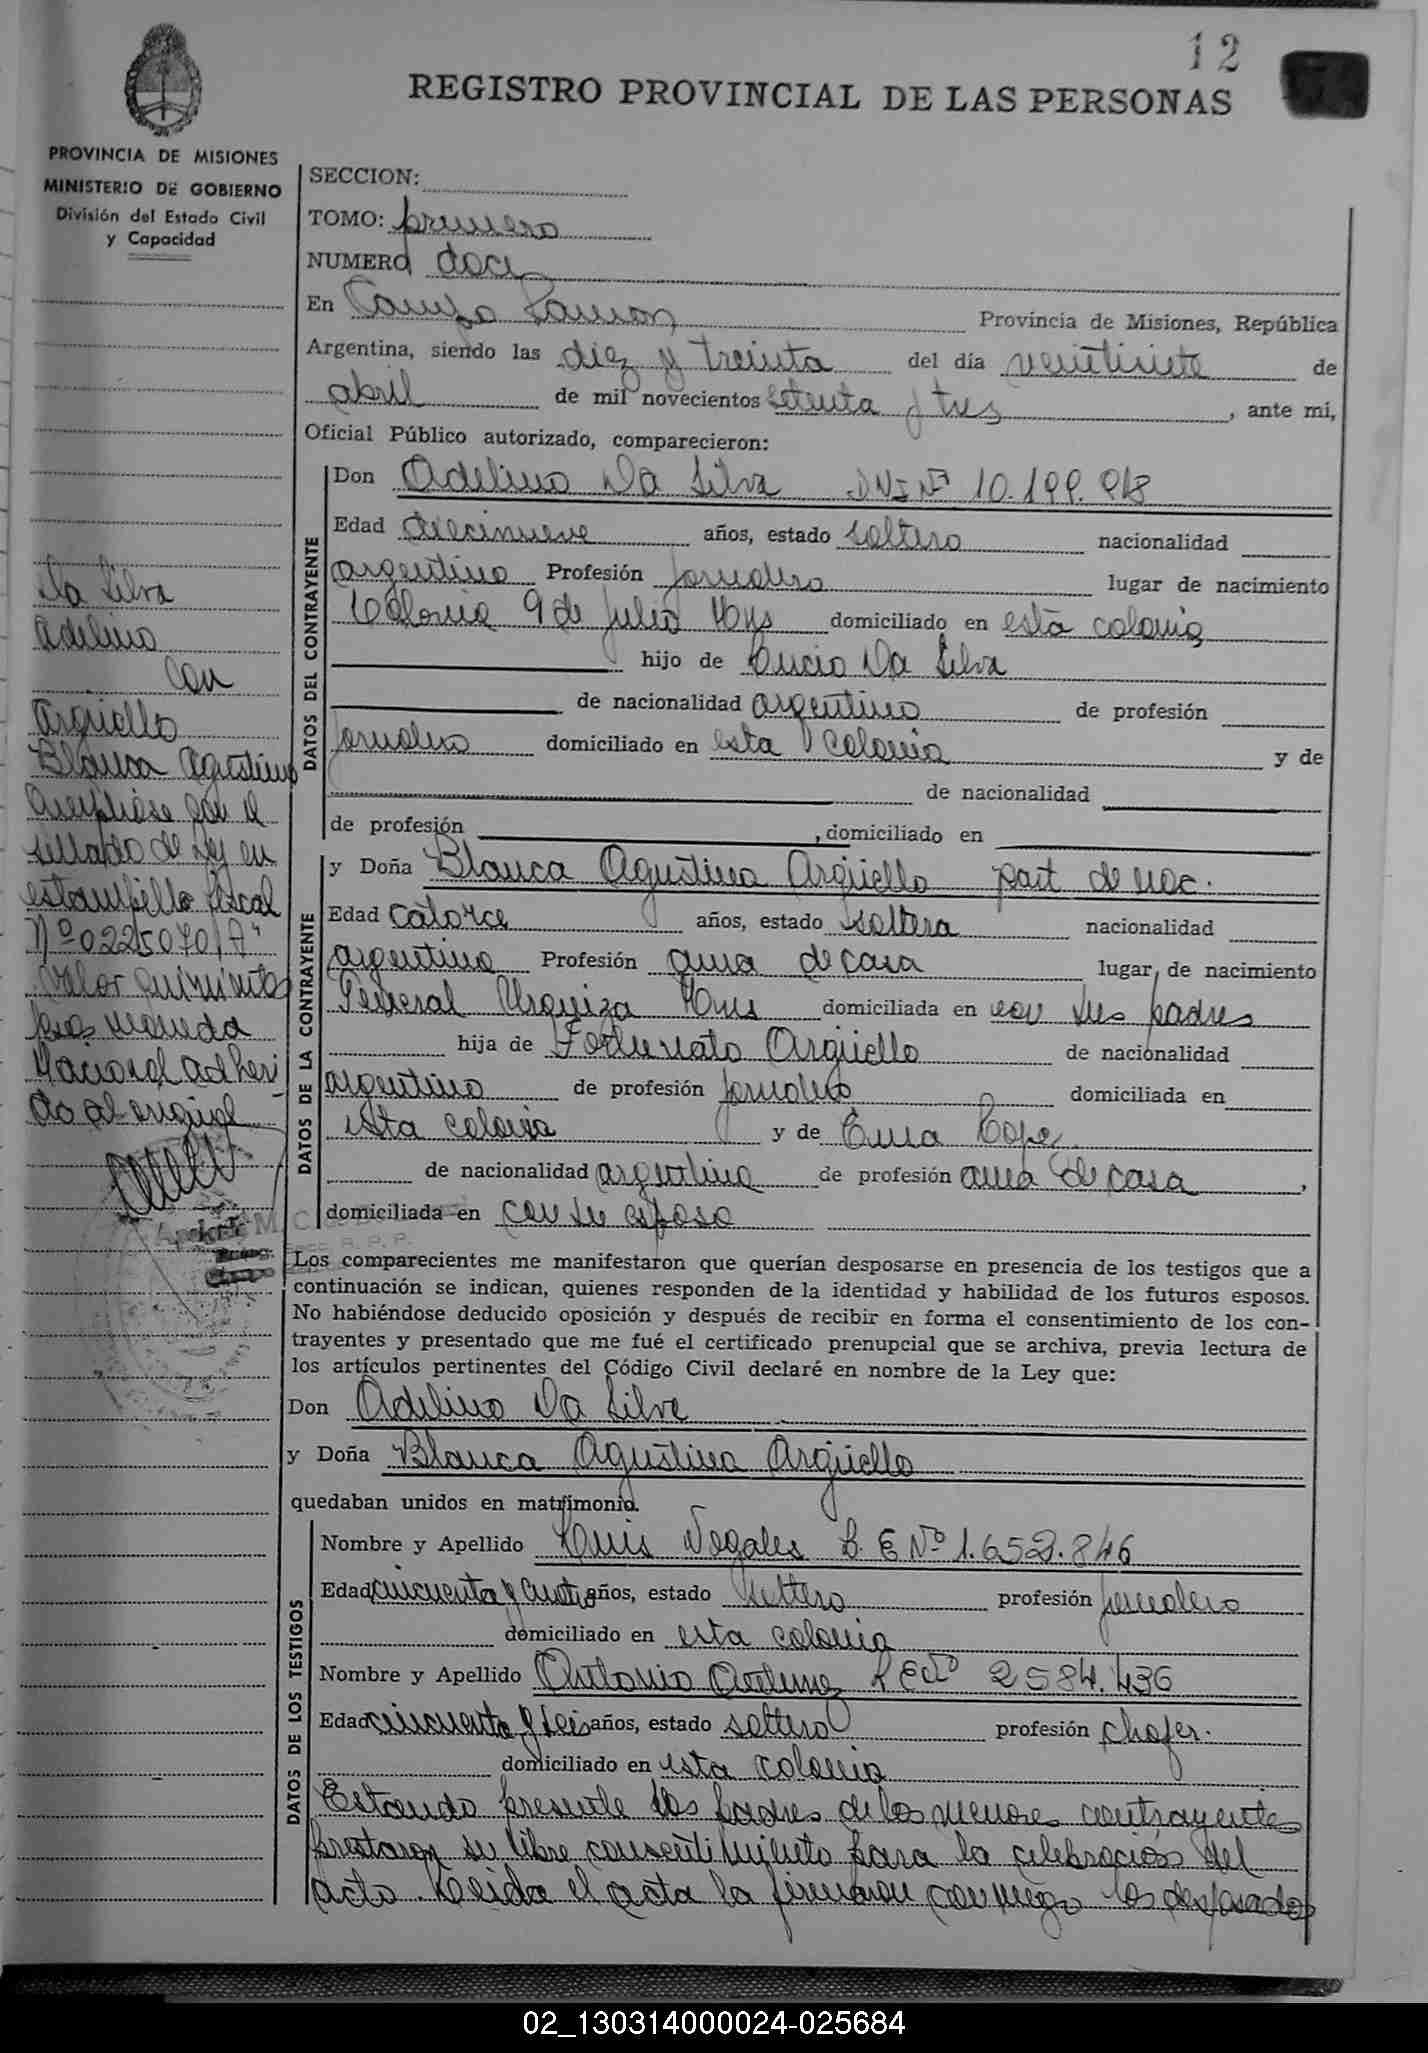 12
REGISTRO PROVINCIAL DE LAS PERSONAS
PROVINCIA DE MISIONES
MINISTERIO DE GOBIERNO
División del Estado Civil
y Capacidad
SECCION:
TOMO: primero
NUMERO doce
En Campo Ramon Provincia de Misiones, República
Argentina, siendo las diez y treinta del día veintisiete de
abril de mil novecientos setenta y tres, ante mí,
Oficial Público autorizado, comparecieron:
DATOS DEL CONTRAYENTE
Don Adelino Da Silva DNI Nº 10.199.918
Edad diecinueve años, estado soltero nacionalidad
argentino Profesión jornalero lugar de nacimiento
Colonia 9 de Julio Mns domiciliado en esta colonia
hijo de Lucio Da Silva
de nacionalidad argentino de profesión
jornalero domiciliado en esta colonia y de
de nacionalidad
de profesión , domiciliado en
DATOS DE LA CONTRAYENTE
y Doña Blanca Agustina Argüello part de nac.
Edad catorce años, estado soltera nacionalidad
argentina Profesión ama de casa lugar de nacimiento
General Urquiza Mns domiciliada en con sus padres
hija de Fortunato Argüello de nacionalidad
argentino de profesión jornalero domiciliada en
esta colonia y de Ema Lopez
de nacionalidad argentina de profesión ama de casa,
domiciliada en con su esposo
Los comparecientes me manifestaron que querían desposarse en presencia de los testigos que a
continuación se indican, quienes responden de la identidad y habilidad de los futuros esposos.
No habiéndose deducido oposición y después de recibir en forma el consentimiento de los con-
trayentes y presentado que me fué el certificado prenupcial que se archiva, previa lectura de
los artículos pertinentes del Código Civil declaré en nombre de la Ley que:
Don Adelino Da Silva
y Doña Blanca Agustina Argüello
quedaban unidos en matrimonio.
DATOS DE LOS TESTIGOS
Nombre y Apellido Luis Negales L. E Nº 1.652.846
Edad cincuenta y cuatro años, estado soltero profesión jornalero
domiciliado en esta colonia
Nombre y Apellido Antonio L E Nº 2584.436
Edad cincuenta y seis años, estado soltero profesión chofer.
domiciliado en esta colonia
Estando presente los padres de los menore contrayentes
prestaron su libre consentimiento para la celebración del
acto. Leida el acta la firmaron conmigo los desposados
Da Silva
Adelino
con
Argüello
Blanca Agustina
Cumpliose con el
sellado de ley en
estampilla fiscal
Nº 0225070 "A"
valor quinientos
pesos moneda
Nacional adheri
do al original
02_130314000024-025684